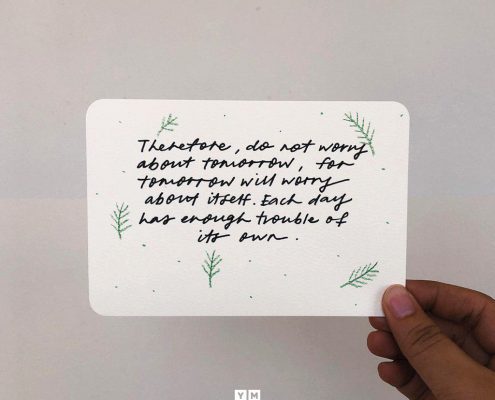 Therefore, do not worry
about tomorrow, for
tomorrow will worry
about itself. Each day
has enough trouble of
its own.
Y M